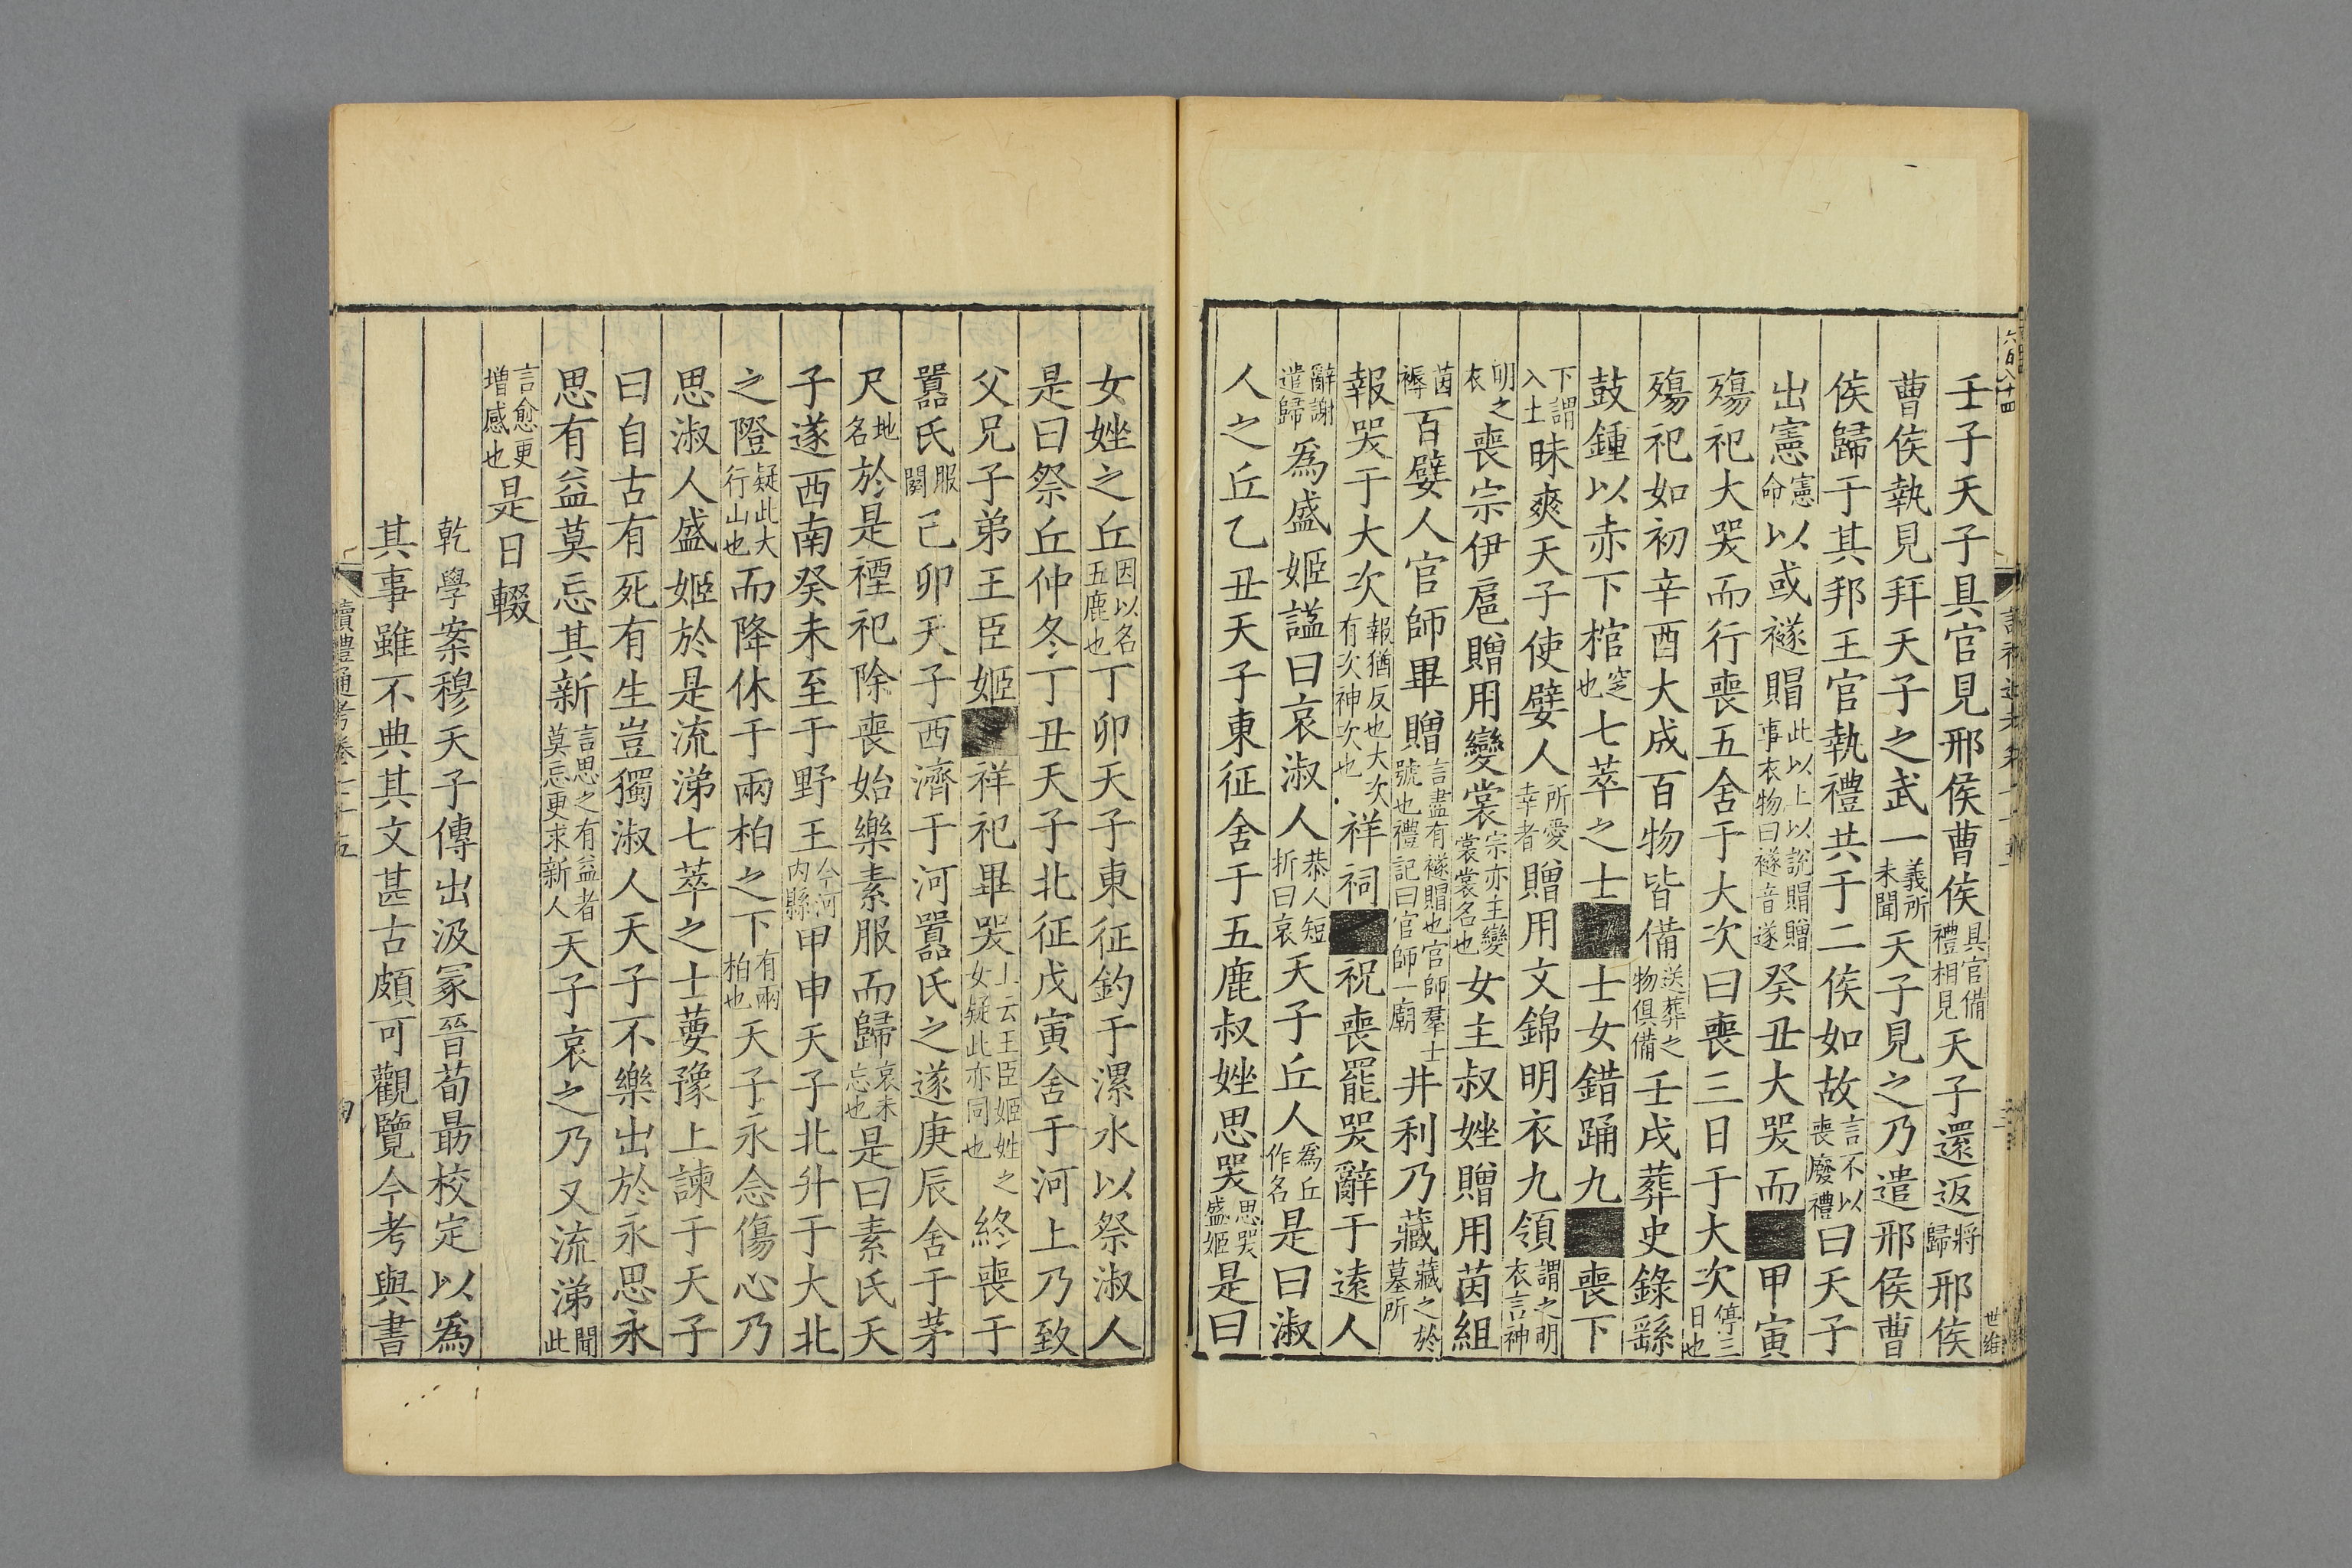 六百八十四
世維
壬子天子具官見邢侯曹侯具官備禮相見天子還返將歸邢侯
曹侯執見拜天子之武一義所未聞天子見之乃遣邢侯曹
侯歸于其邦王官執禮共于二侯如故言不以喪廢禮曰天子
出憲憲命以或襚賵此以上以說賵贈事衣物曰襚音遂癸丑大哭而■甲寅
殤祀大哭而行喪五舍于大次曰喪三日于大次停三日也
殤祀如初辛酉大成百物皆備送葬之物俱備壬戌葬史錄繇
鼓鍾以赤下棺窆也七萃之士■士女錯踊九■喪下
下謂入土昧爽天子使嬖人所愛幸者贈用文錦明衣九領謂之明衣言神
明之衣喪宗伊扈贈用變裳宗亦主變裳裳名也女主叔㛗贈用茵組
茵褥百嬖人官師畢贈言盡有襚賵也官師羣士號也禮記曰官師一廟井利乃藏藏之於墓所
報哭于大次報猶反也大次有次神次也祥祠■祝喪罷哭辭于遠人
辭謝遣歸爲盛姬謚曰哀淑人恭人短折曰哀天子丘人爲丘作名是曰淑
人之丘乙丑天子東征舍于五鹿叔㛗思哭思哭盛姬是曰
女㛗之丘因以名五鹿也丁卯天子東征釣于漯水以祭淑人
是曰祭丘仲冬丁丑天子北征戊寅舍于河上乃致
父兄子弟王臣姬■祥祀畢哭上云王臣姬姓之女疑此亦同也終喪于
囂氏服闋己卯天子西濟于河囂氏之遂庚辰舍于茅
尺地名於是禋祀除喪始樂素服而歸哀未忘也是曰素氏天
子遂西南癸未至于野王今河內縣甲申天子北升于大北
之隥疑此大行山也而降休于兩柏之下有兩柏也天子永念傷心乃
思淑人盛姬於是流涕七萃之士葽豫上諫于天子
曰自古有死有生豈獨淑人天子不樂出於永思永
思有益莫忘其新言思之有益者莫忘更求新人天子哀之乃又流涕聞此
言愈更增感也是日輟
乾學案穆天子傳出汲冢晉荀勗校定以爲
其事雖不典其文甚古頗可觀覽今考與書
讀禮通考卷